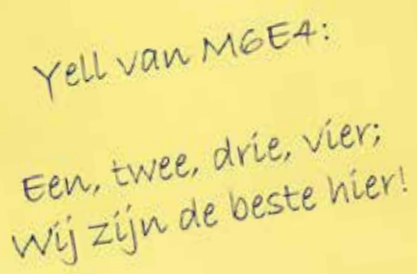 Yell van M6E4:
Een, twee, drie, vier;
Wij zijn de beste hier!